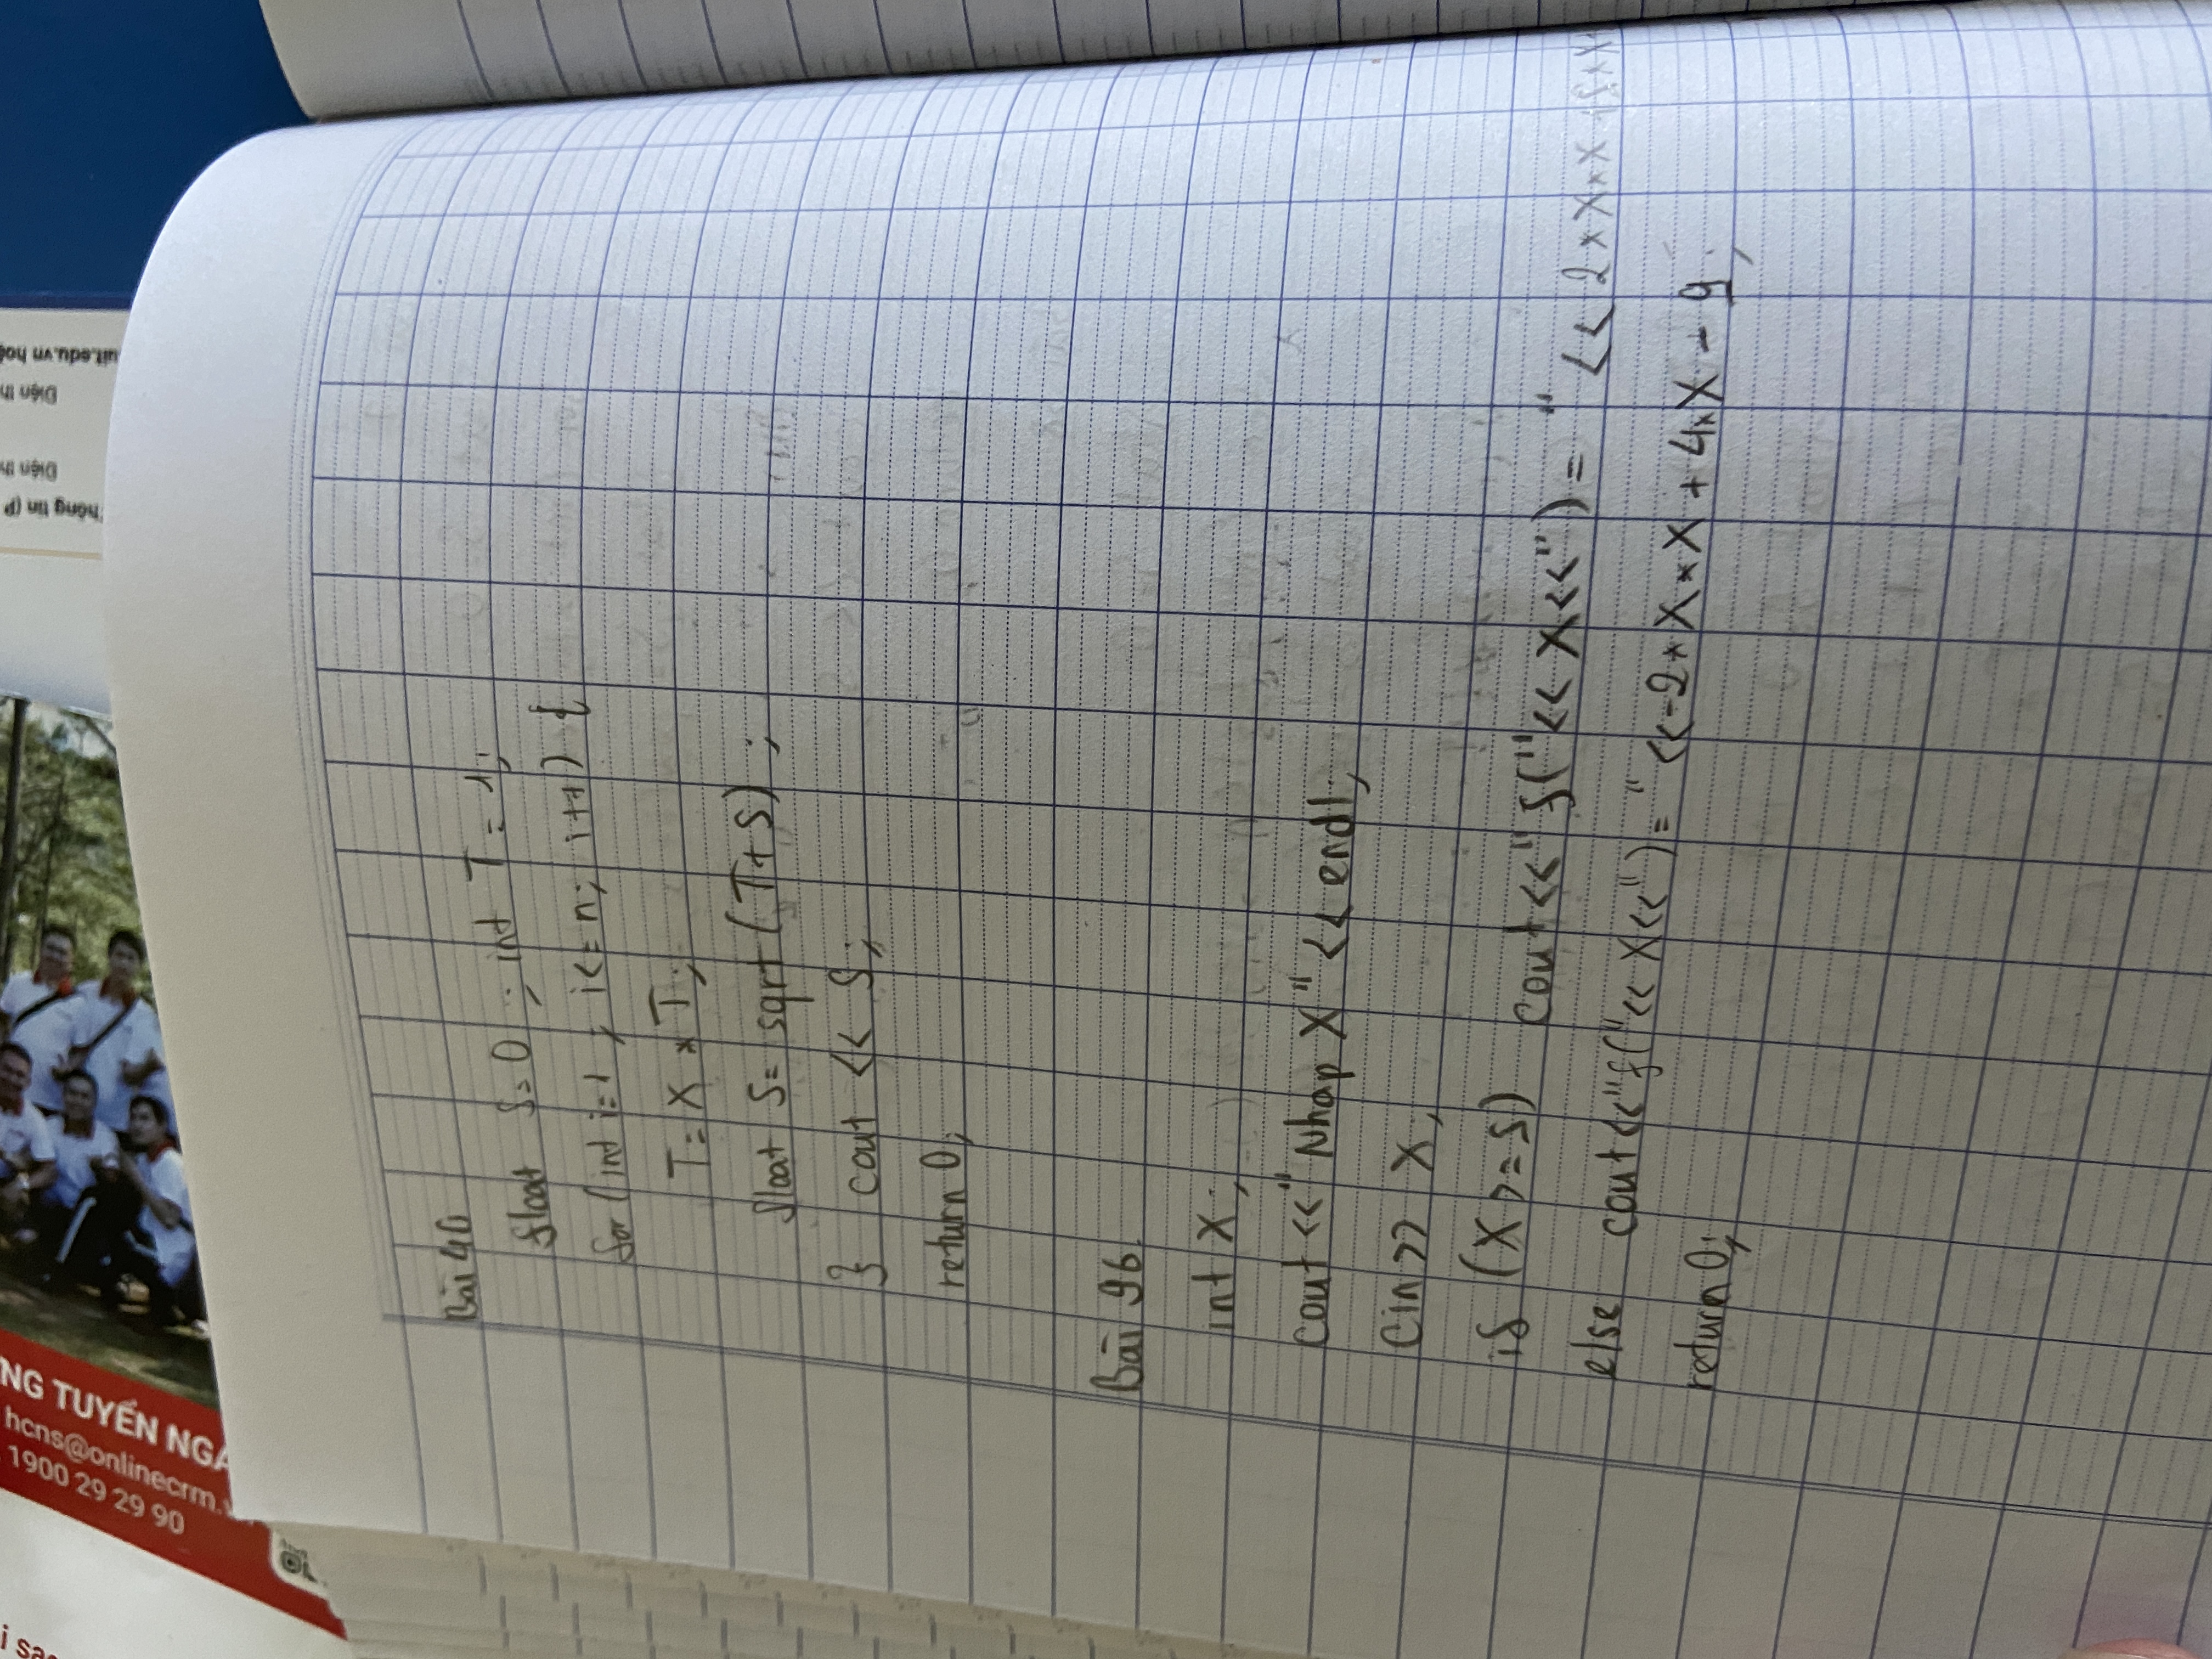 Bài 40
float S=0; int T=1;
for (int i=1; i<=n; i++) {
T=X*T;
float S=sqrt(T+S);
} cout << S;
return 0;
Bài 96.
int X;
Cout <<"Nhap X"<< endl;
Cin>> X;
if (X>=5) Cout <<"f("<< X<<")= "<< 2*X*X+5*X
else cout<<"f("<< X<<")= "<<-2*X*X+4*X-9;
return 0;
NG TUYẾN NGÀ
hcns@onlinecrm.v
1900 29 29 90
Thông tin (P
Điện th
Điện th
uit.edu.vn hoặ